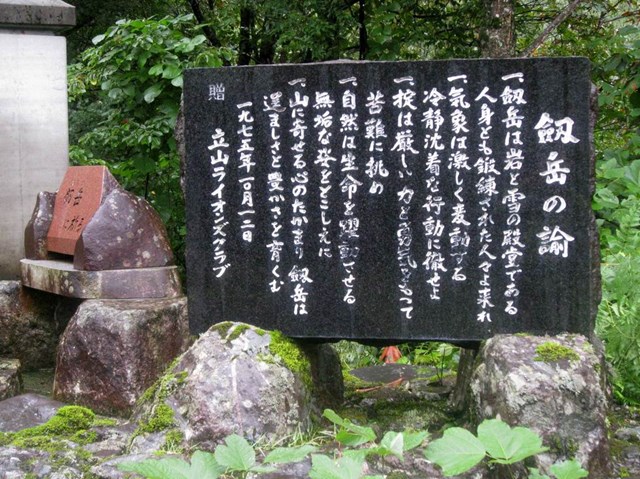 劔岳の諭
一、劔岳は岩と雪の殿堂である
人身とも鍛錬された人々よ来れ
一、気象は激しく変動する
冷静沈着な行動に徹せよ
一、掟は厳しい力と勇気をもって
苦難に挑め
一、自然は生命を躍動させる
無垢な姿をとこしえに
一、山に寄せる心のたかまり 劔岳は
逞ましさと豊かさを育くむ
一九七五年一〇月一二日
贈 立山ライオンズクラブ